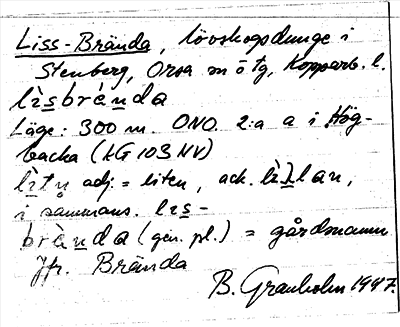 Liss-Brända, lövskogsdunge i
Stenberg, Orsa sn ö tg, Kopparb. l.
lìsbrànda
Läge: 300 m. ONO. 2:a a i Hög-
backa (kG 103 NV)
adj. = liten, ack.
i sammans. lɪs-
brànda (gen. pl.) = gårdsnamn
Jfr. Brända
B. Granholm 1947.